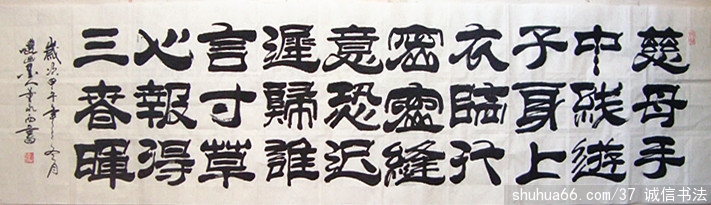 慈母手
中线遊
子身上
衣臨行
密密縫
意恐迟
遲歸誰
言寸草
心報得
三春暉
歲次甲午年冬月
shuhua66.com/37 诚信书法